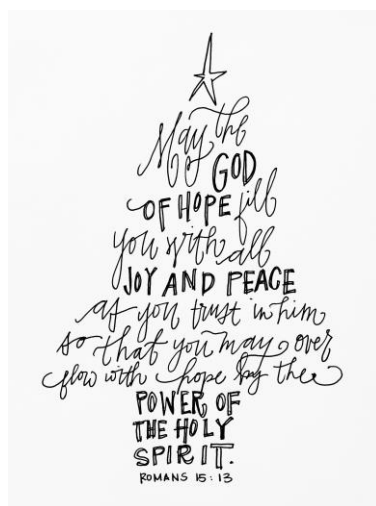 May the
GOD
OF HOPE fill
you with all
JOY AND PEACE
as you trust in him
so that you may over
flow with hope by the
POWER OF
THE HOLY
SPIRIT.
ROMANS 15:13